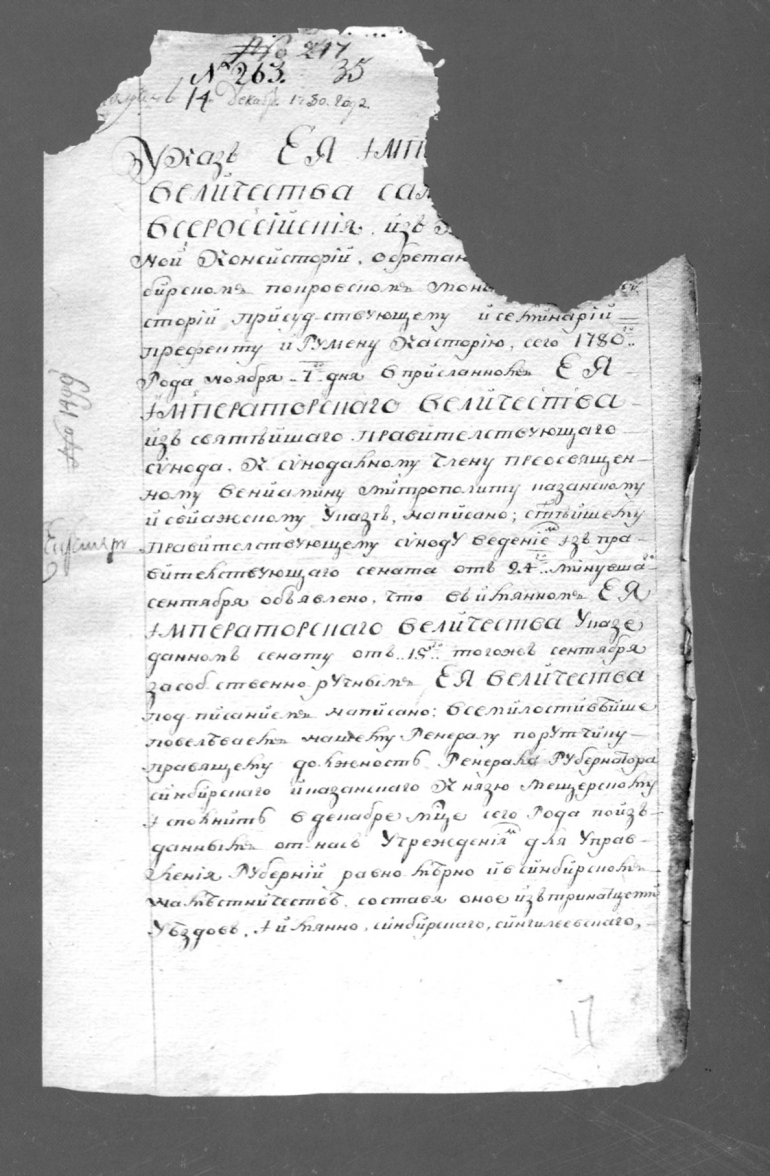 № 217
№ 263. 35
14 Декабр 1780. году
Указъ ЕЯ ІМП
ВЕЛИЧЕСТВА САМ
ВСЕРОССІЙСКІЯ. изъ
мой Консисторій, обретаю
бирскомъ покровскомъ мон
сторій присудствующему и семинарій
префекту игумену Касторію, сего 1780го
Года ноября 7 дня в присланномъ ЕЯ
ІМПЕРАТОРСКАГО ВЕЛИЧЕСТВА
изъ святѣйшаго правителствующаго
сѵнода. к сѵнодалному члену преосвящен-
ному вениамину митрополиту казанскому
и свияжскому указѣ, написано; стѣйшему
правителствующему сѵноду ведениемъ изъ пра-
вителствующаго сената отъ 24го минувша
сентября объявлено, что въ имянномъ ЕЯ
ІМПЕРАТОРСКАГО ВЕЛИЧЕСТВА Указе
данномъ сенату отъ 15го тогожъ сентября
за собственноручнымъ ЕЯ ВЕЛИЧЕСТВА
подписаниемъ написано: всемилостивѣйше
повелѣваемъ нашему Генералу порутчику
правящему должность Генерала Губернатора
синбирскаго и казанскаго Князю Мещерскому
ісполнить в декабре мце сего Года по изъ-
даннымъ от насъ Учреждениямъ для Управ-
ления Губерний равномѣрно и в синбирскомъ
намѣстничествѣ, составя оное изъ тринатцети
Уѣздовъ, імянно, синбирскаго, сингилеевскаго,
№ 1399
17